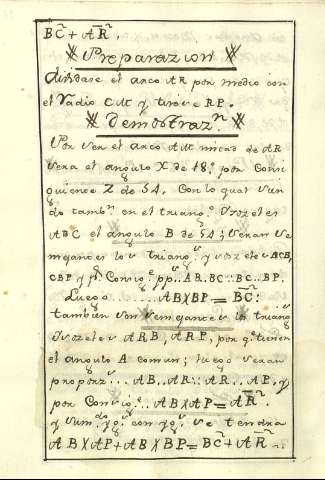 BC² + AR².
Preparazion
Dividase el arco AR por medio con
el Radio CM y tirese RP.
Demostraz.n
Por ser el arco AM mitad de AR
sera el angulo X de 18º por Consi
guiente Z de 54. Con lo qual sien
do tamb.n en el triang.o Ysozeles
ABC el angulo B de 54; seran se
mejantes los triang.s ysozeles ACB,
CBP y p.r Consig.e pp.s AB..BC::BC..BP.
Luego ...... AB X BP = BC²:
tambien son semejantes los triang.s
Ysozeles ARB, ARP, por q.e tienen
el angulo A comun; luego seran
proporz.s... AB..AR::AR..AP. y
por Consig.e.. AB X AP = AR².
y sum.do yg.s con yg.s se tendra
AB X AP + AB X BP = BC² + AR² ..